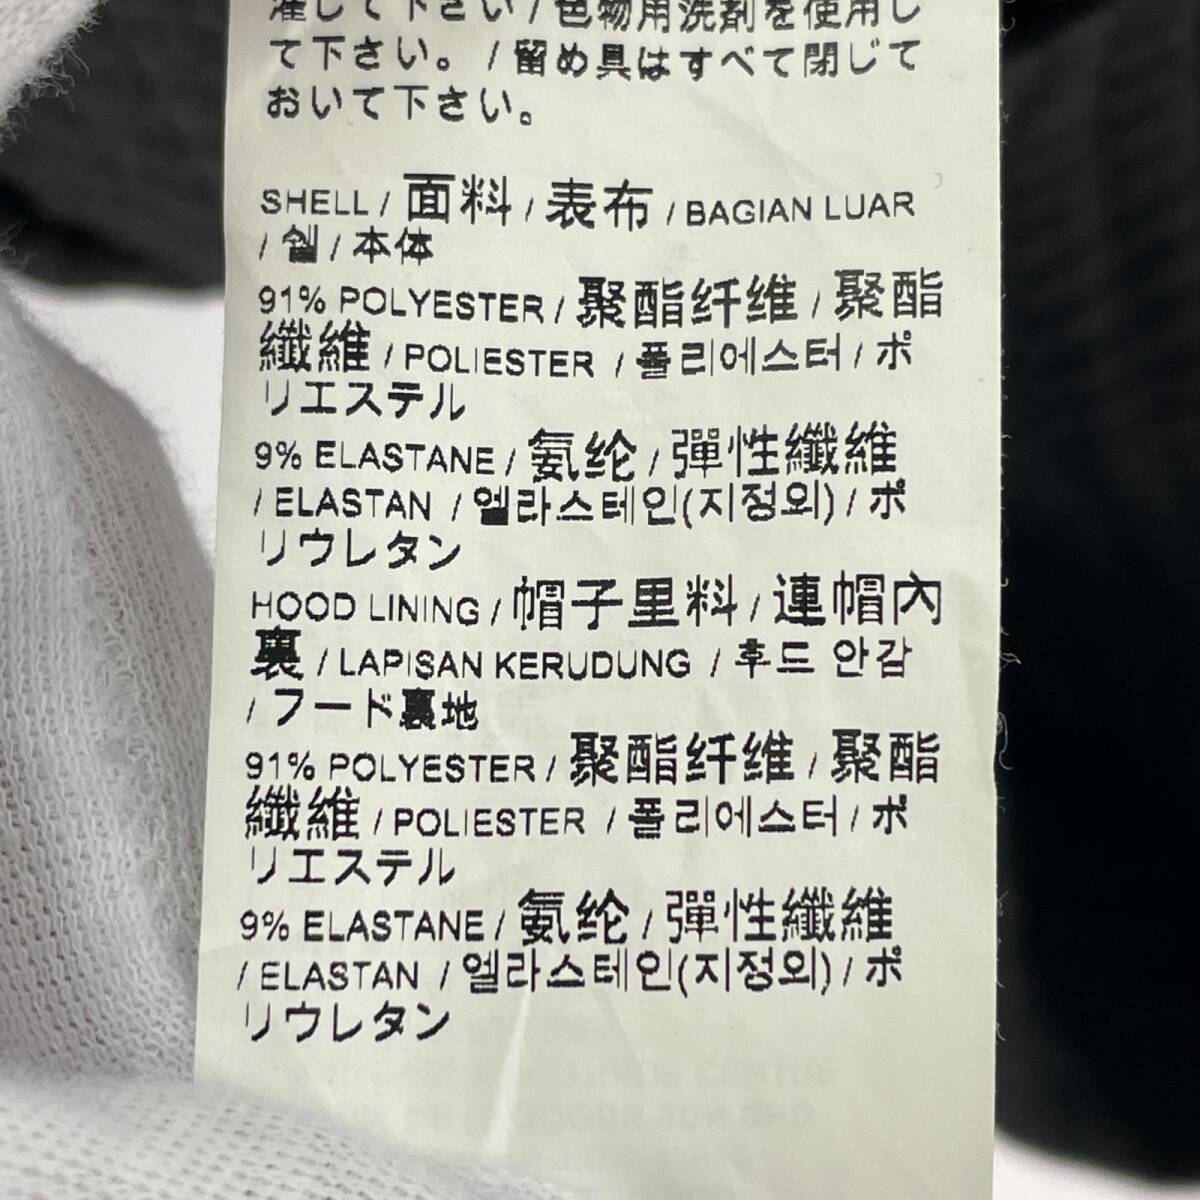 濯して下さい/色物用洗剤を使用し
て下さい。/留め具はすべて閉じて
おいて下さい。
SHELL/面料/表布/BAGIAN LUAR
/쉘/本体
91% POLYESTER/聚酯纤维/聚酯
纖維/POLIESTER/폴리에스터/ポ
リエステル
9% ELASTANE/氨纶/彈性纖維
/ELASTAN/엘라스테인(지정외)/ポ
リウレタン
HOOD LINING/帽子里料/連帽內
裏/LAPISAN KERUDUNG/후드 안감
/フード裏地
91% POLYESTER/聚酯纤维/聚酯
纖維/POLIESTER/폴리에스터/ポ
リエステル
9% ELASTANE/氨纶/彈性纖維
/ELASTAN/엘라스테인(지정외)/ポ
リウレタン